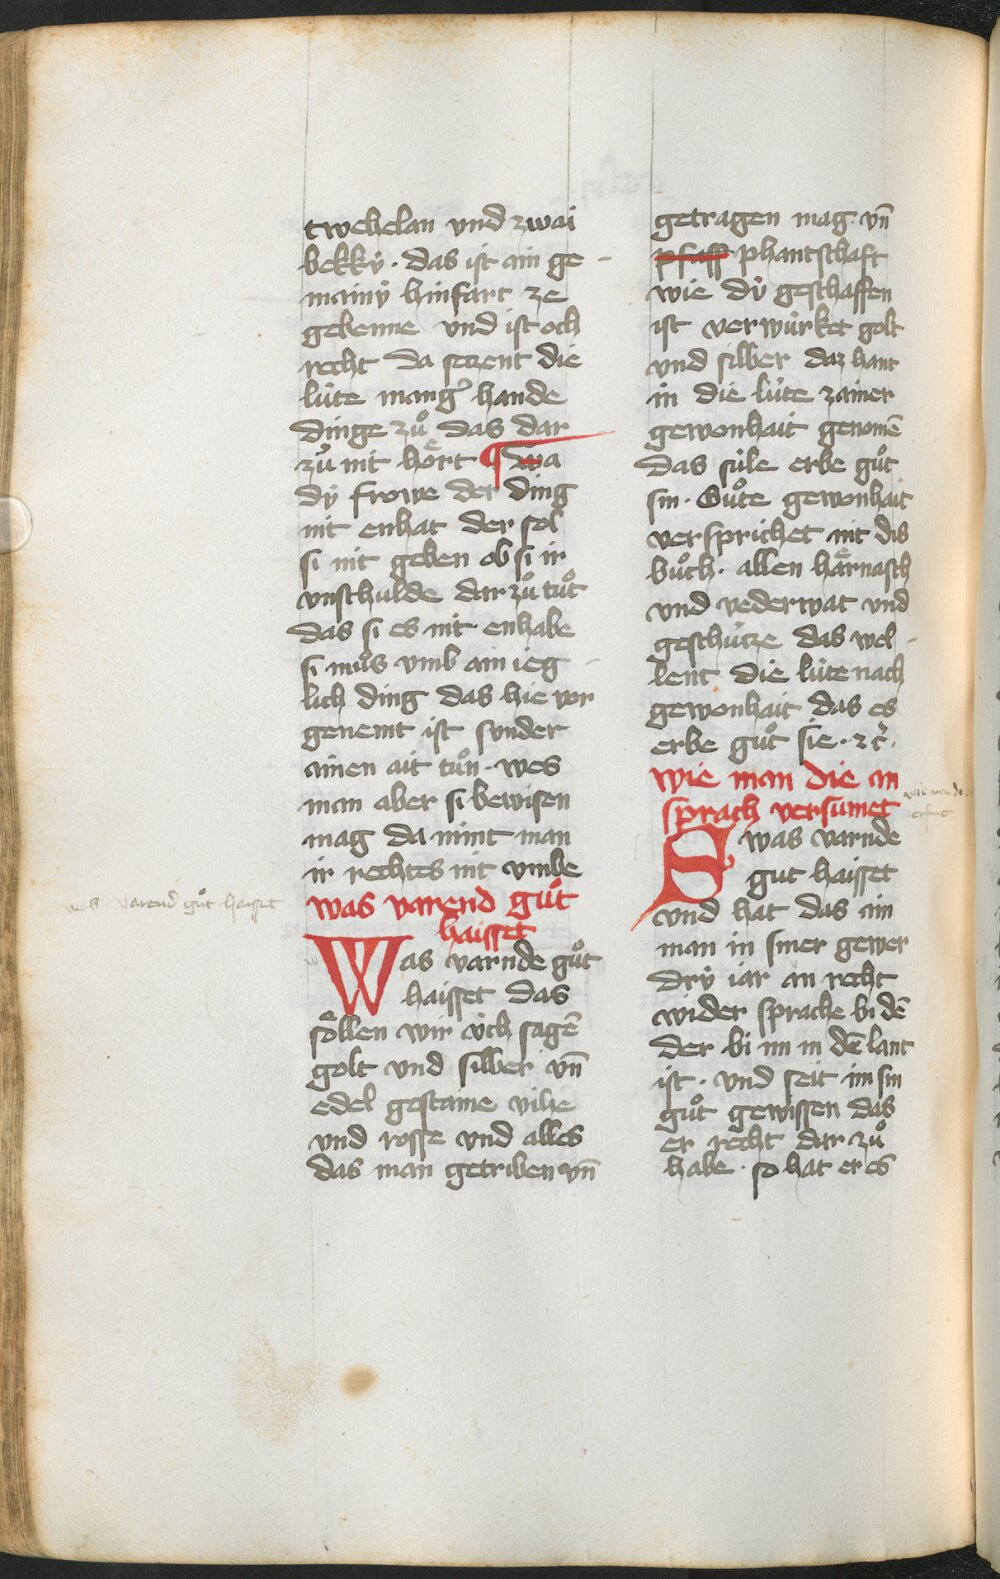 twehelan vnd zwai
bekkÿ · das ist ain ge -
mainÿ hinfart ze
gebenne vnd ist och
recht da setzent die
lúte mangˀ hande
dinge zuͦ das dar
zuͦ nit hoͤrt ¶ wa
dÿ frowe der ding
nit enhat der sol
si nit geben ob si ir
vnschulde dar zuͦ tuͦt
das si es nit enhabe
si muͦs vmb ain ieg -
lich ding das hie vor
genemt ist sunder
ainen ait tuͦn · wes
man aber si bewisen
mag da nimt man
ir rechtes nit vmbe
was varend guͦt
haisset
Was varnde guͦt
haisset das
soͤllen wir úch sagē
golt vnd silber vn̄
edel gestaine vihe
vnd rosse vnd alles
das man getriben vn̄
was varend guͦt haisset
getragen mag · vn̄
pfaff phantschaft
wie dÿ geschaffen
ist verwúrket golt
vnd silber daz hant
in die lúte zainer
gewonhait genomē
das súle erbe guͦt
sin · Guͦte gewonhait
versprichet nit dis
buͦch · allen haͤrnasch
vnd vederwat vnd
geschútze das wel -
lent die lúte nach
gewonhait das es
erbe guͦt sie · ⁊c̄ ·
wie man die an
sprach versumet
Swas varnde
gut haisset
vnd hat das ain
man in siner gewer
drÿ iar an recht
wider sprache bi dē
der bi im in dē lant
ist · vnd seit im sin
guͦt gewissen das
er recht dar zuͦ
habe · so hat er es